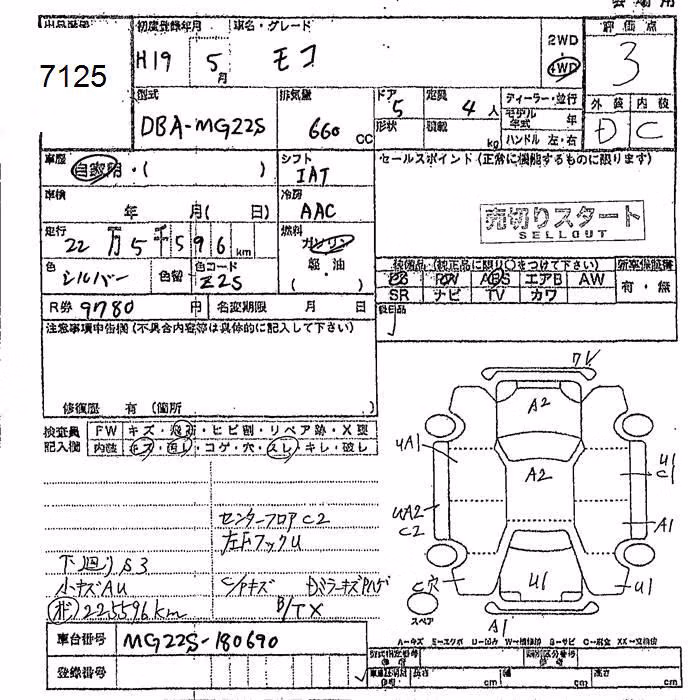 7125
初度登録年月 車名・グレード
H19 5月 モコ
2WD
4WD
評価点
3
型式 排気量 ドア 定員 ディーラー・並行
DBA-MG22S 660 CC 5 4人
モデル年式 年
形状 積載 kg ハンドル 左・右
外装 内装
D C
車歴 自家用・( )
シフト IAT
セールスポイント (正常に機能するものに限ります)
車検 年 月( 日)
冷房 AAC
売切りスタート
SELLOUT
走行 22万5千596km
燃料 ガソリン
軽・油
( )
色 シルバー 色替 色コード Z2S
装備品 (純正品に限り○をつけて下さい) 新車保証書
PS PW ABS エアB AW 有・無
SR ナビ TV カワ
R券 9780 円 名変期限 月 日
注意事項申告欄 (不具合内容等は具体的に記入して下さい)
修復歴 有 (箇所 )
検査員 FW キズ・飛石・ヒビ割・リペア跡・X要
記入欄 内装 キズ・汚レ・コゲ・穴・スレ・キレ・破レ
7V
A2
UA1
A2
U1
C1
UA2
C2
A1
C穴
U1
U1
スペア
A1
センターフロアC2
左FフックU
下回りS3
小キズAU
225596km
B/TX
A-キズ E-エクボ U-凹み W-補修跡 S-サビ C-腐食 XX-交換済
車台番号 MG22S-180690
登録番号
型式指定番号 類別区分番号
長さ cm 幅 cm 高さ cm